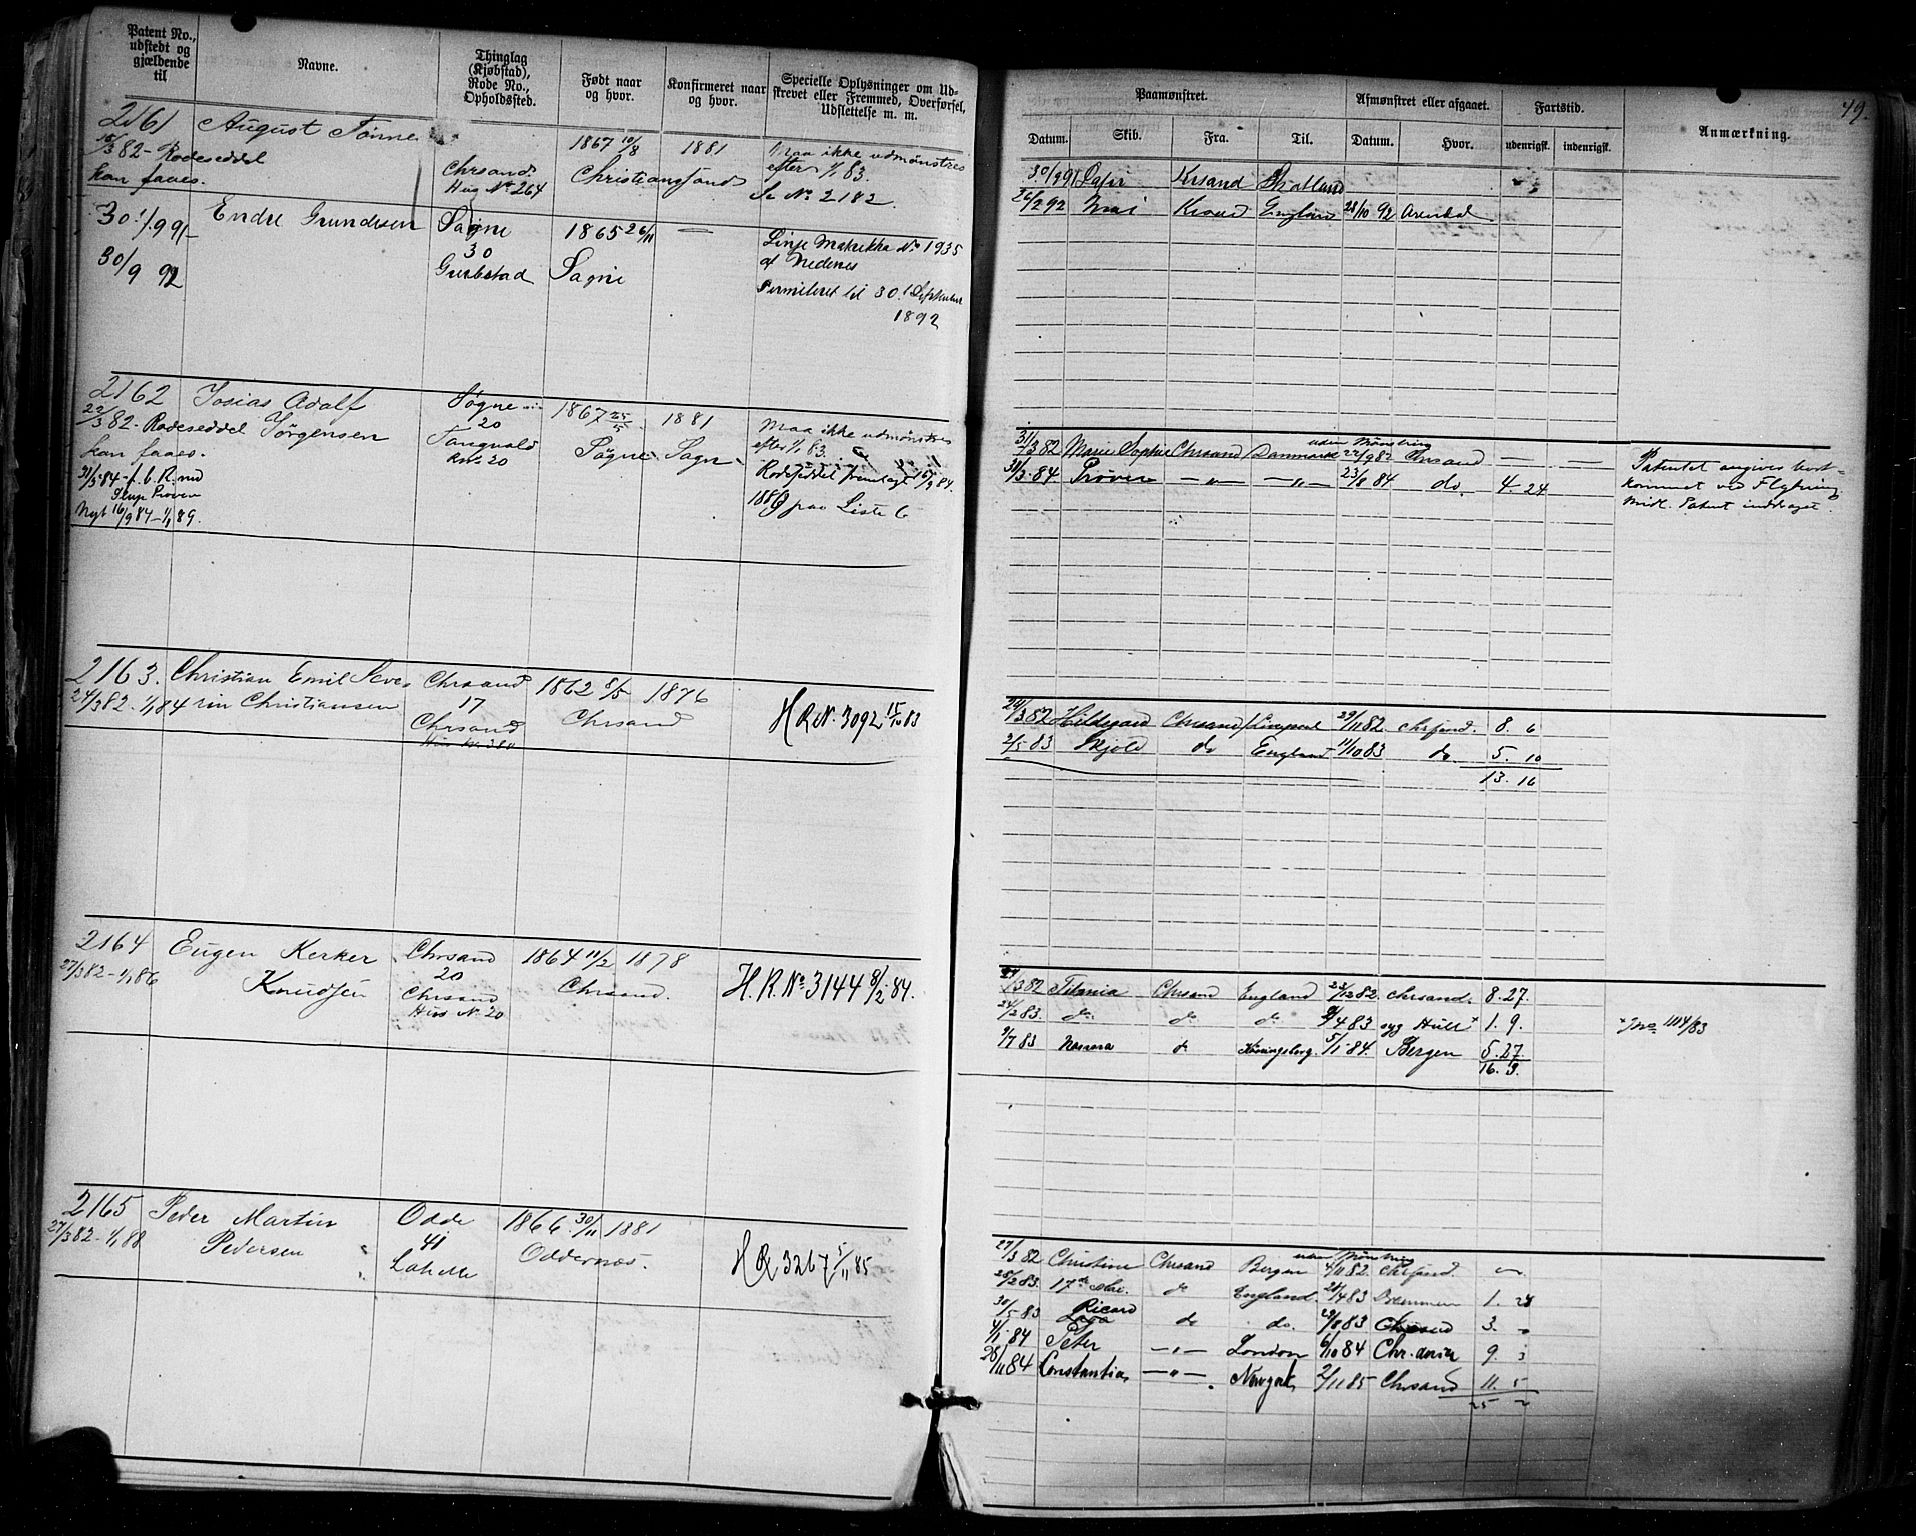 Patent No., udstedt og gjældende til
Navne.
Thinglag (Kjøbstad), Rode No., Opholdssted.
Født naar og hvor.
Konfirmeret naar og hvor.
Specielle Oplysninger om Udskrevet eller Fremmed, Overførsel, Udslettelse m. m.
2161 August Tønne 1867 10/8 1881 Maa ikke udmønstres
15/3 82 - Rodeseddel Chrsand efter 1/1 83.
kan faaes. Hus No 264 Christianssand Se No 2182
30/1.991- Endre Grundesen Søgne 1865 26/11 — Linje Matrikka No 1935
30 af Nedenes
30/9 92 Søgne
Permiteret til 30. September
1892
2162 Josias Adolf Søgne 1867 25/5 1881 Maa ikke udmønstres
22/3 82 - Rodeseddel Jørgensen 20 Søgne Søgne efter 1/1 83.
kan faaes. Tangvald Rodeseddel fremlagt 16/9 84.
31/3 84 Rno 20
Nyt 16/9 84 - 1/1 89. paa Liste 6
2163. Christian Emil Seve- Chrsand 1862 8/5 1876
24/3 82 - 1/1 84 rin Christiansen 17 Chrsand H R N. 3092 15/10 83
Chrsand
Hus No 380
2164 Eugen Kerker Chrsand 1864 11/2 1878
27/3 82 - 1/1 86 Knudsen 20 Chrsand. H. R. No 3144 8/2 84.
Chrsand
Hus N. 20
2165 Peder Martin Odde 1866 30/11 1881
27/3 82 - 1/1 88 Pedersen 41 Oddernæs. H R 3267 5/11 85
Lahelle
49.
Paamønstret.
Afmønstret eller afgaaet.
Fartstid.
Anmærkning.
Datum. Skib. Fra. Til. Datum. Hvor. udenrigsk. indenrigsk.
Krsand
26/2 92 England 28/10 92 Arendal
uden Mønstring
31/3 82 Marie Sophie Chrsand Danmark 22/9 82 Chrsand — — Patentet angives bort-
31/3 84 Prøven —„— —„— 23/8 84 do. 4. 24 kommet ved Flytning
Patent inddraget.
24/3 82 Hildegard Chrsand Liverpool 29/11 82 Chrsand. 8. 6
2/5 83 Skjold do England 11/10 83 do. 5. 10
13. 16
27/3 82 Titania Chrsand England 23/12 82. Chrsand. 8. 27.
24/2 83. do do do 2/4 83 syg Hull + 1. 9. + Jno 1114/83
9/7 83 do Kønningsberg 5/1 84. Bergen 5. 27
16. 3.
uden Mønstring
27/3 82 Christine Chrsand Bergen 4/11 82. Chrsand.
28/2 83. 17de Mai. do England. Bremmen 1. 28
30/5 83 Ricard do do. 29/8 83 Chrsand 3.
4/1 84 Peter —„— London 6/10 84 Chr.ania 9. 3
28/11 84 Constantia —„— Newyork 2/11 85 Chrsand 11. 5
25